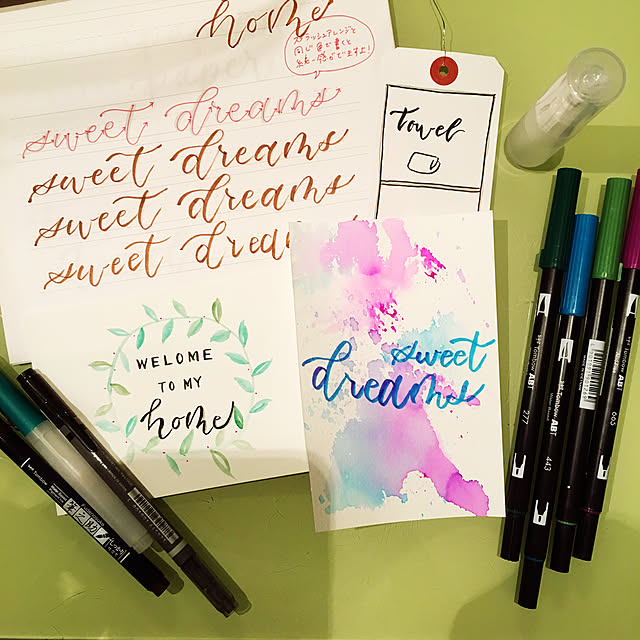 home
スラッシュアレンジと
同じ色で書くと
統一感がでますよ!
sweet dreams
sweet dreams
sweet dreams
sweet dreams
Towel
WELOME
TO MY
home
sweet
dreams
Tombow ABT
277
Tombow ABT
443
ABT
665